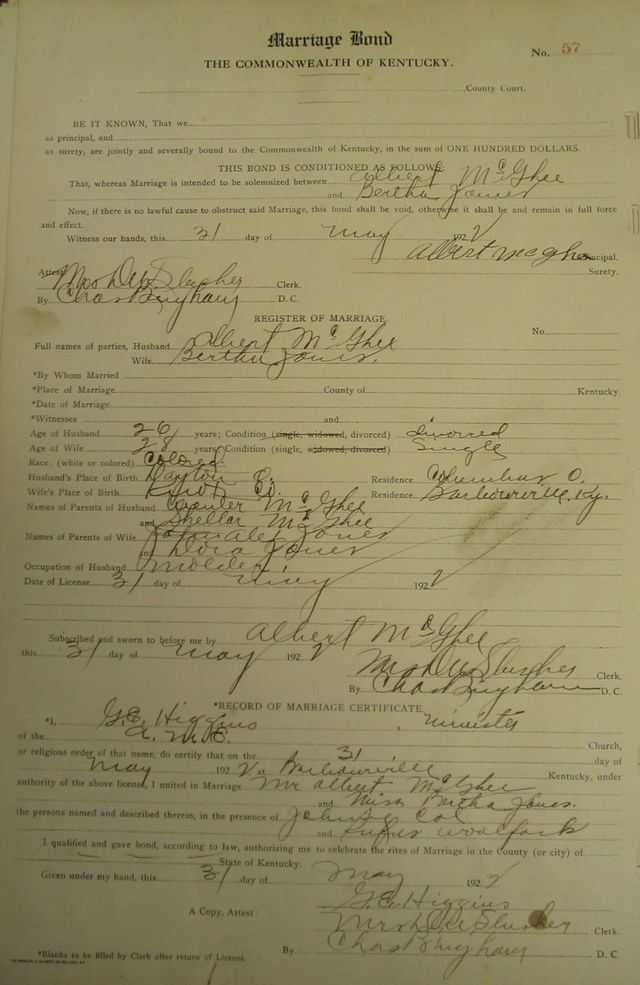 Marriage Bond
No. 57
THE COMMONWEALTH OF KENTUCKY.
County Court.
BE IT KNOWN, That we
as principal, and
as surety, are jointly and severally bound to the Commonwealth of Kentucky, in the sum of ONE HUNDRED DOLLARS.
THIS BOND IS CONDITIONED AS FOLLOWS:
That, whereas Marriage is intended to be solemnized between Albert McGhee
and Bertha Jones
Now, if there is no lawful cause to obstruct said Marriage, this bond shall be void, otherwise it shall be and remain in full force
and effect.
Witness our hands, this 31 day of May 1922
Albert McGhee Principal.
Surety.
Attest Mrs D W Slusher Clerk.
By Chas Bingham D. C.
REGISTER OF MARRIAGE
No.
Full names of parties, Husband Albert McGhee
Wife Bertha Jones.
*By Whom Married
*Place of Marriage County of Kentucky.
*Date of Marriage
*Witnesses and
Age of Husband 26 years; Condition (single, widowed, divorced) divorced
Age of Wife 28 years; Condition (single, widowed, divorced) Single
Race: (white or colored) Colored.
Husband's Place of Birth Dayton O. Residence Columbus O.
Wife's Place of Birth Knox Co. Residence Barbourville, Ky.
Names of Parents of Husband McGhee
and McGhee
Names of Parents of Wife Jones
and Dora Jones
Occupation of Husband Molder
Date of License 31 day of May 1922
Subscribed and sworn to before me by Albert McGhee
this 31 day of May 1922
Mrs D W Slusher Clerk.
By Chas Bingham D. C.
*RECORD OF MARRIAGE CERTIFICATE.
*I, G.E. Higgins , Minister
of the A. M. E. Church,
or religious order of that name, do certify that on the 31 day of
May 1922 at Barbourville Kentucky, under
authority of the above license, I united in Marriage Mr Albert McGhee
and Miss Bertha Jones.
the persons named and described therein, in the presence of John Col
and Rufus Woolfork
I qualified and gave bond, according to law, authorizing me to celebrate the rites of Marriage in the County (or city) of
State of Kentucky.
Given under my hand, this 31 day of May 1922
G.E. Higgins
A Copy, Attest: Mrs D W Slusher Clerk.
By Chas Bingham D. C.
*Blanks to be filled by Clerk after return of License.